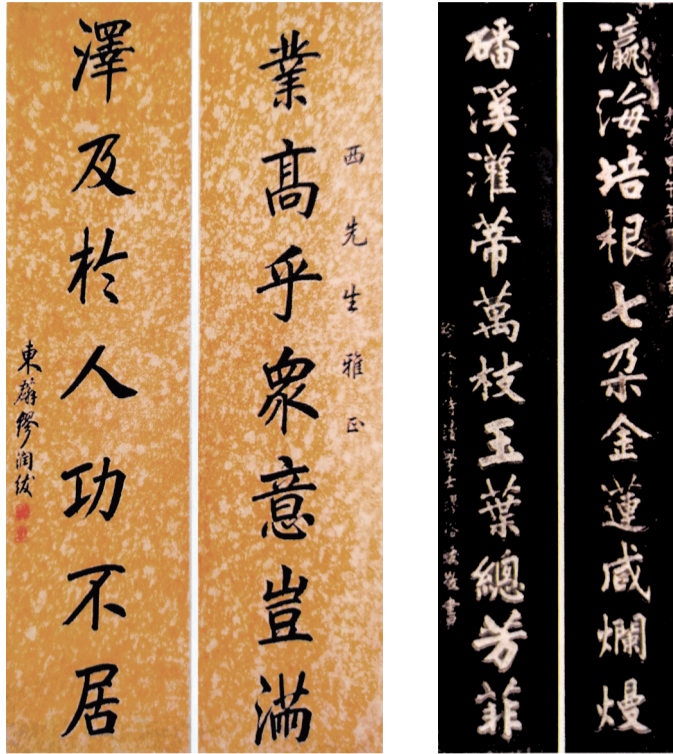 業高乎衆意豈滿
西先生雅正
澤及於人功不居
東麟繆润紱
瀛海培根七朶金蓮咸爛熳
磻溪灌蒂萬枝玉葉總芳菲